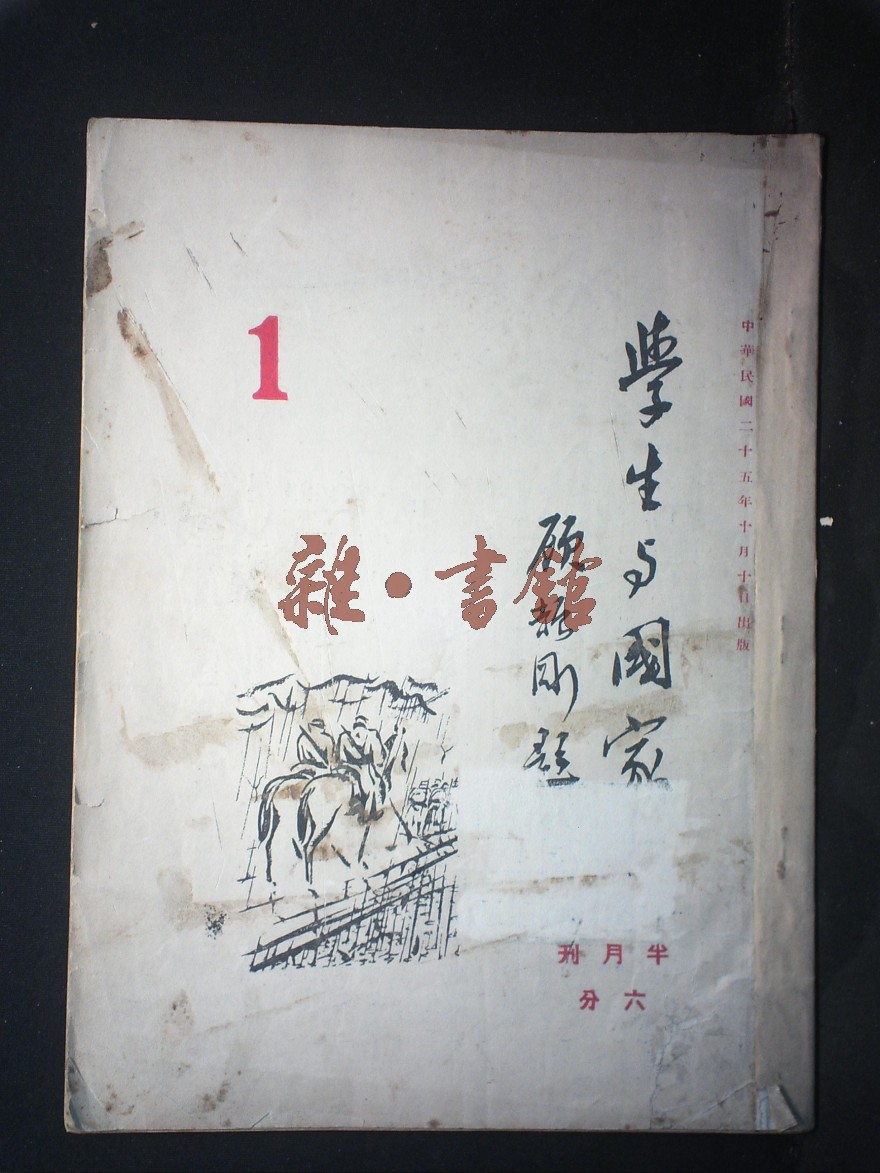 中華民國二十五年十月十日出版
學生与國家
顾颉刚題
1
雜·書館
半月刊
六分